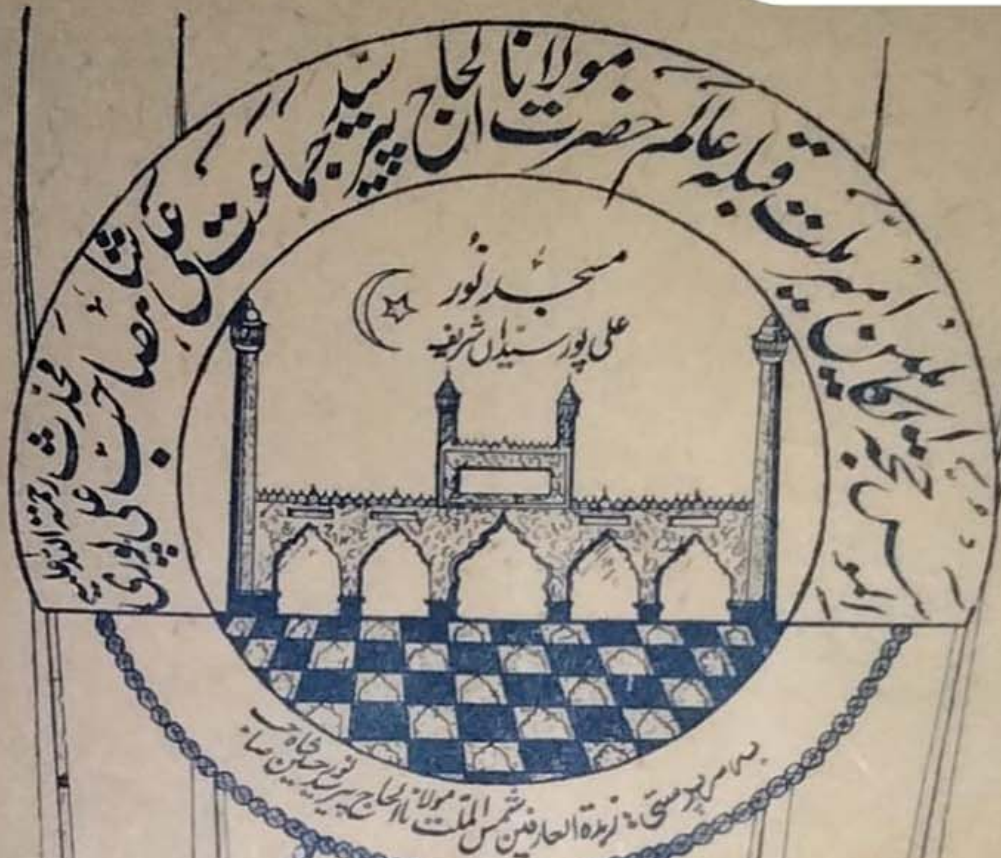 امیر ملت قبلہ عالم حضرت مولانا الحاج پیر سید جماعت علی شاہ صاحب محدث علی پوری رحمۃ اللہ علیہ
مسجد نور
علی پور سیداں شریف
بہ سرپرستی: زبدۃ العارفین شمس الملت مولانا الحاج پیر سید نور حسین شاہ صاحب